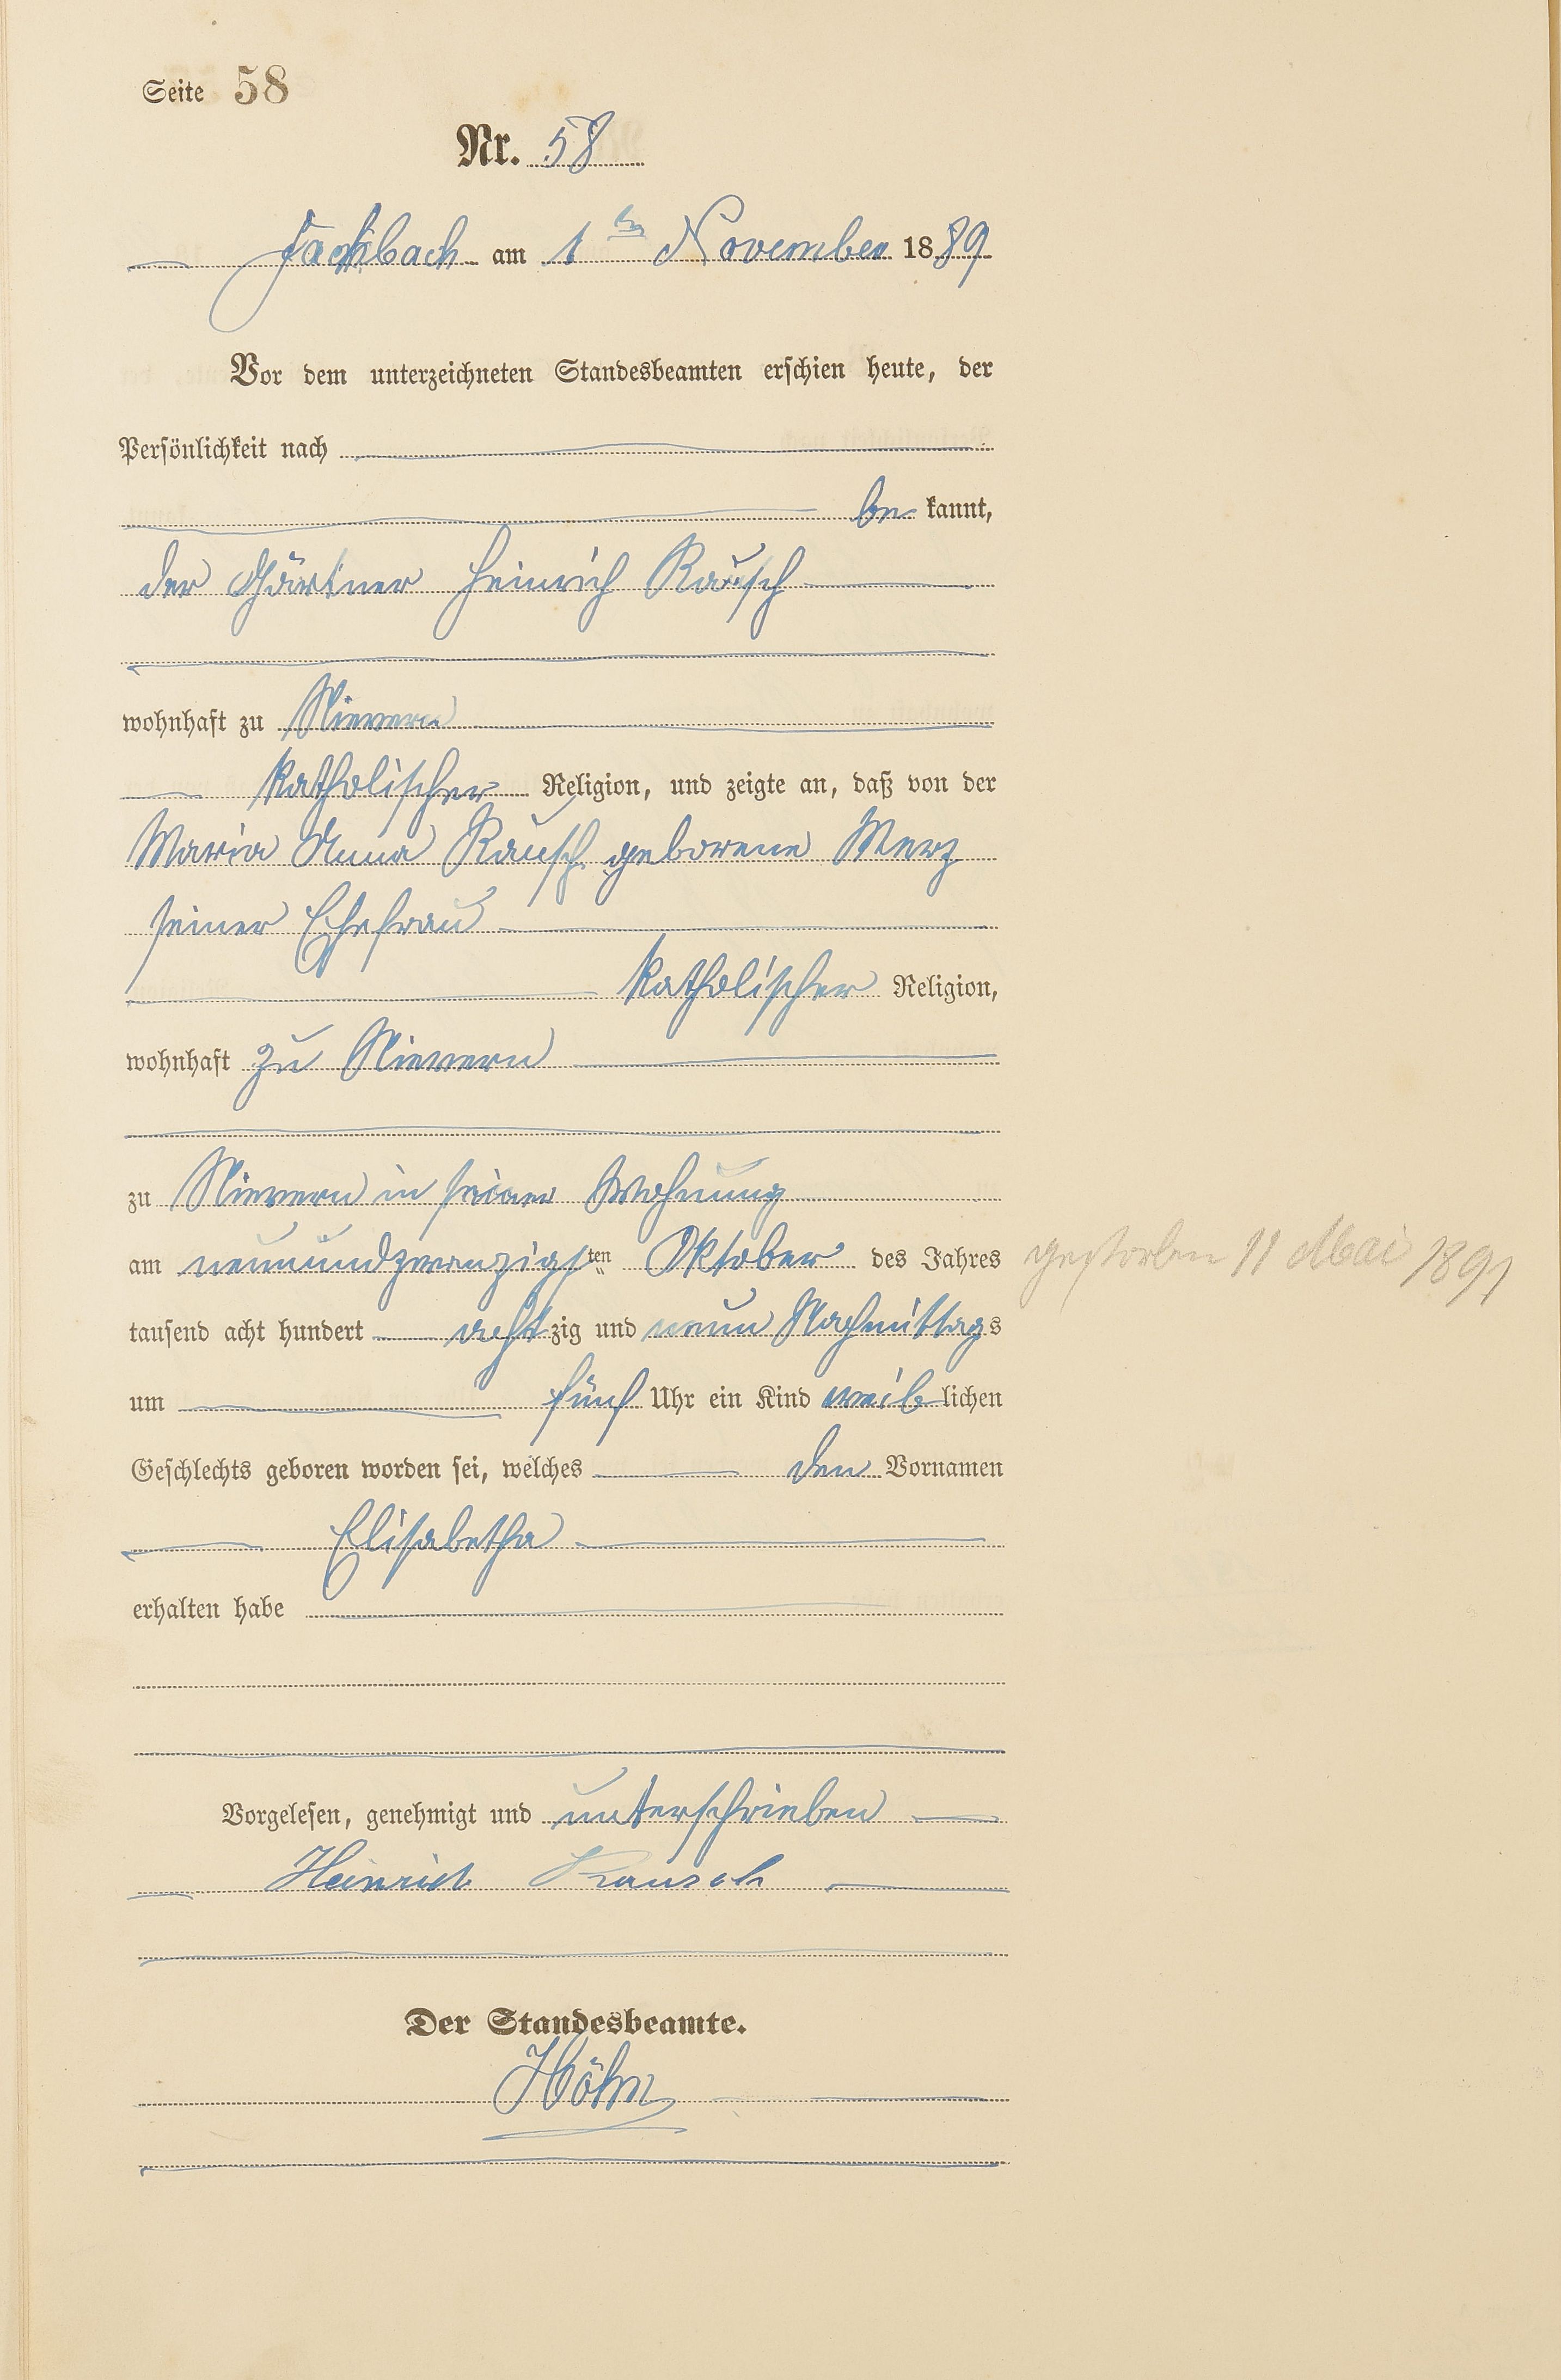 Seite 58
Nr. 58
Fachbach am 1ten November 1889
Vor dem unterzeichneten Standesbeamten erschien heute, der
Persönlichkeit nach
be kannt,
der Gärtner Heinrich Rausch
wohnhaft zu Nievern
katholischer Religion, und zeigte an, daß von der
Maria Anna Rausch geborene Merz
seiner Ehefrau
katholischer Religion,
wohnhaft zu Nievern
zu Nievern in seiner Wohnung
am neunundzwanzigsten Oktober des Jahres
gestorben 11 Mai 1891
tausend acht hundert achtzig und neun Nachmittags
um fünf Uhr ein Kind weiblichen
Geschlechts geboren worden sei, welches den Vornamen
Elisabetha
erhalten habe
Vorgelesen, genehmigt und unterschrieben
Heinrich Rausch
Der Standesbeamte.
Höhn